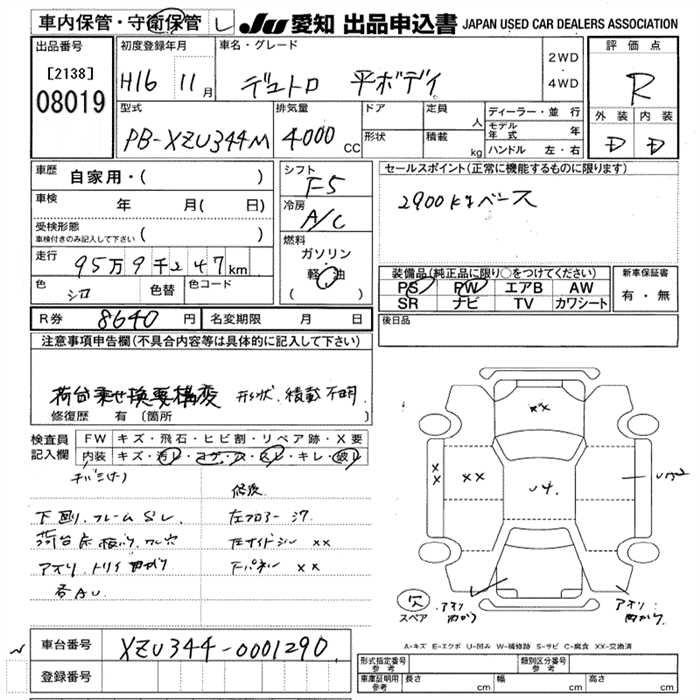 車内保管・守衛保管 レ
JU 愛知 出品申込書 JAPAN USED CAR DEALERS ASSOCIATION
出品番号 初度登録年月 車名・グレード 2WD・4WD 評価点
[2138]
08019 H16 11月 デュトロ 平ボデイ R
型式 排気量 ドア 定員 人 ディーラー・並行 外装 内装
PB-XZU344M 4000 CC 形状 積載 kg モデル年式 年 D D
ハンドル 左・右
車歴 自家用・( ) シフト F5 セールスポイント(正常に機能するものに限ります)
車検 年 月( 日) 冷房 A/C 2900Kgベース
受検形態 ( )
車検付きのみ記入して下さい
燃料
走行 95万9千247km ガソリン 装備品(純正品に限り○をつけてください) 新車保証書
色 シロ 色替 色コード 軽油 PS PW エアB AW 有・無
( ) SR ナビ TV カワシート
R券 8640円 名変期限 月 日 後日品
注意事項申告欄(不具合内容等は具体的に記入して下さい)
荷台乗せ換要構変 形状、積載不明
修復歴 有 (箇所 )
××
検査員 FW キズ・飛石・ヒビ割・リペア跡・X要
記入欄 内装 キズ・汚レ・コゲ・ス・スレ・キレ・破レ
×× ×× U4
修復
下廻り、フレームSレ 左フロアー
××
××
各AU
欠
スペア
アオリ曲がり アオリ曲がり
A-キズ E-エクボ U-凹み W-補修跡 S-サビ C-腐食 XX-交換済
車台番号 XZU344-0001290
登録番号
形式指定番号 参考 類別区分番号 参考
車庫証明用 参考 長さ cm 幅 cm 高さ cm